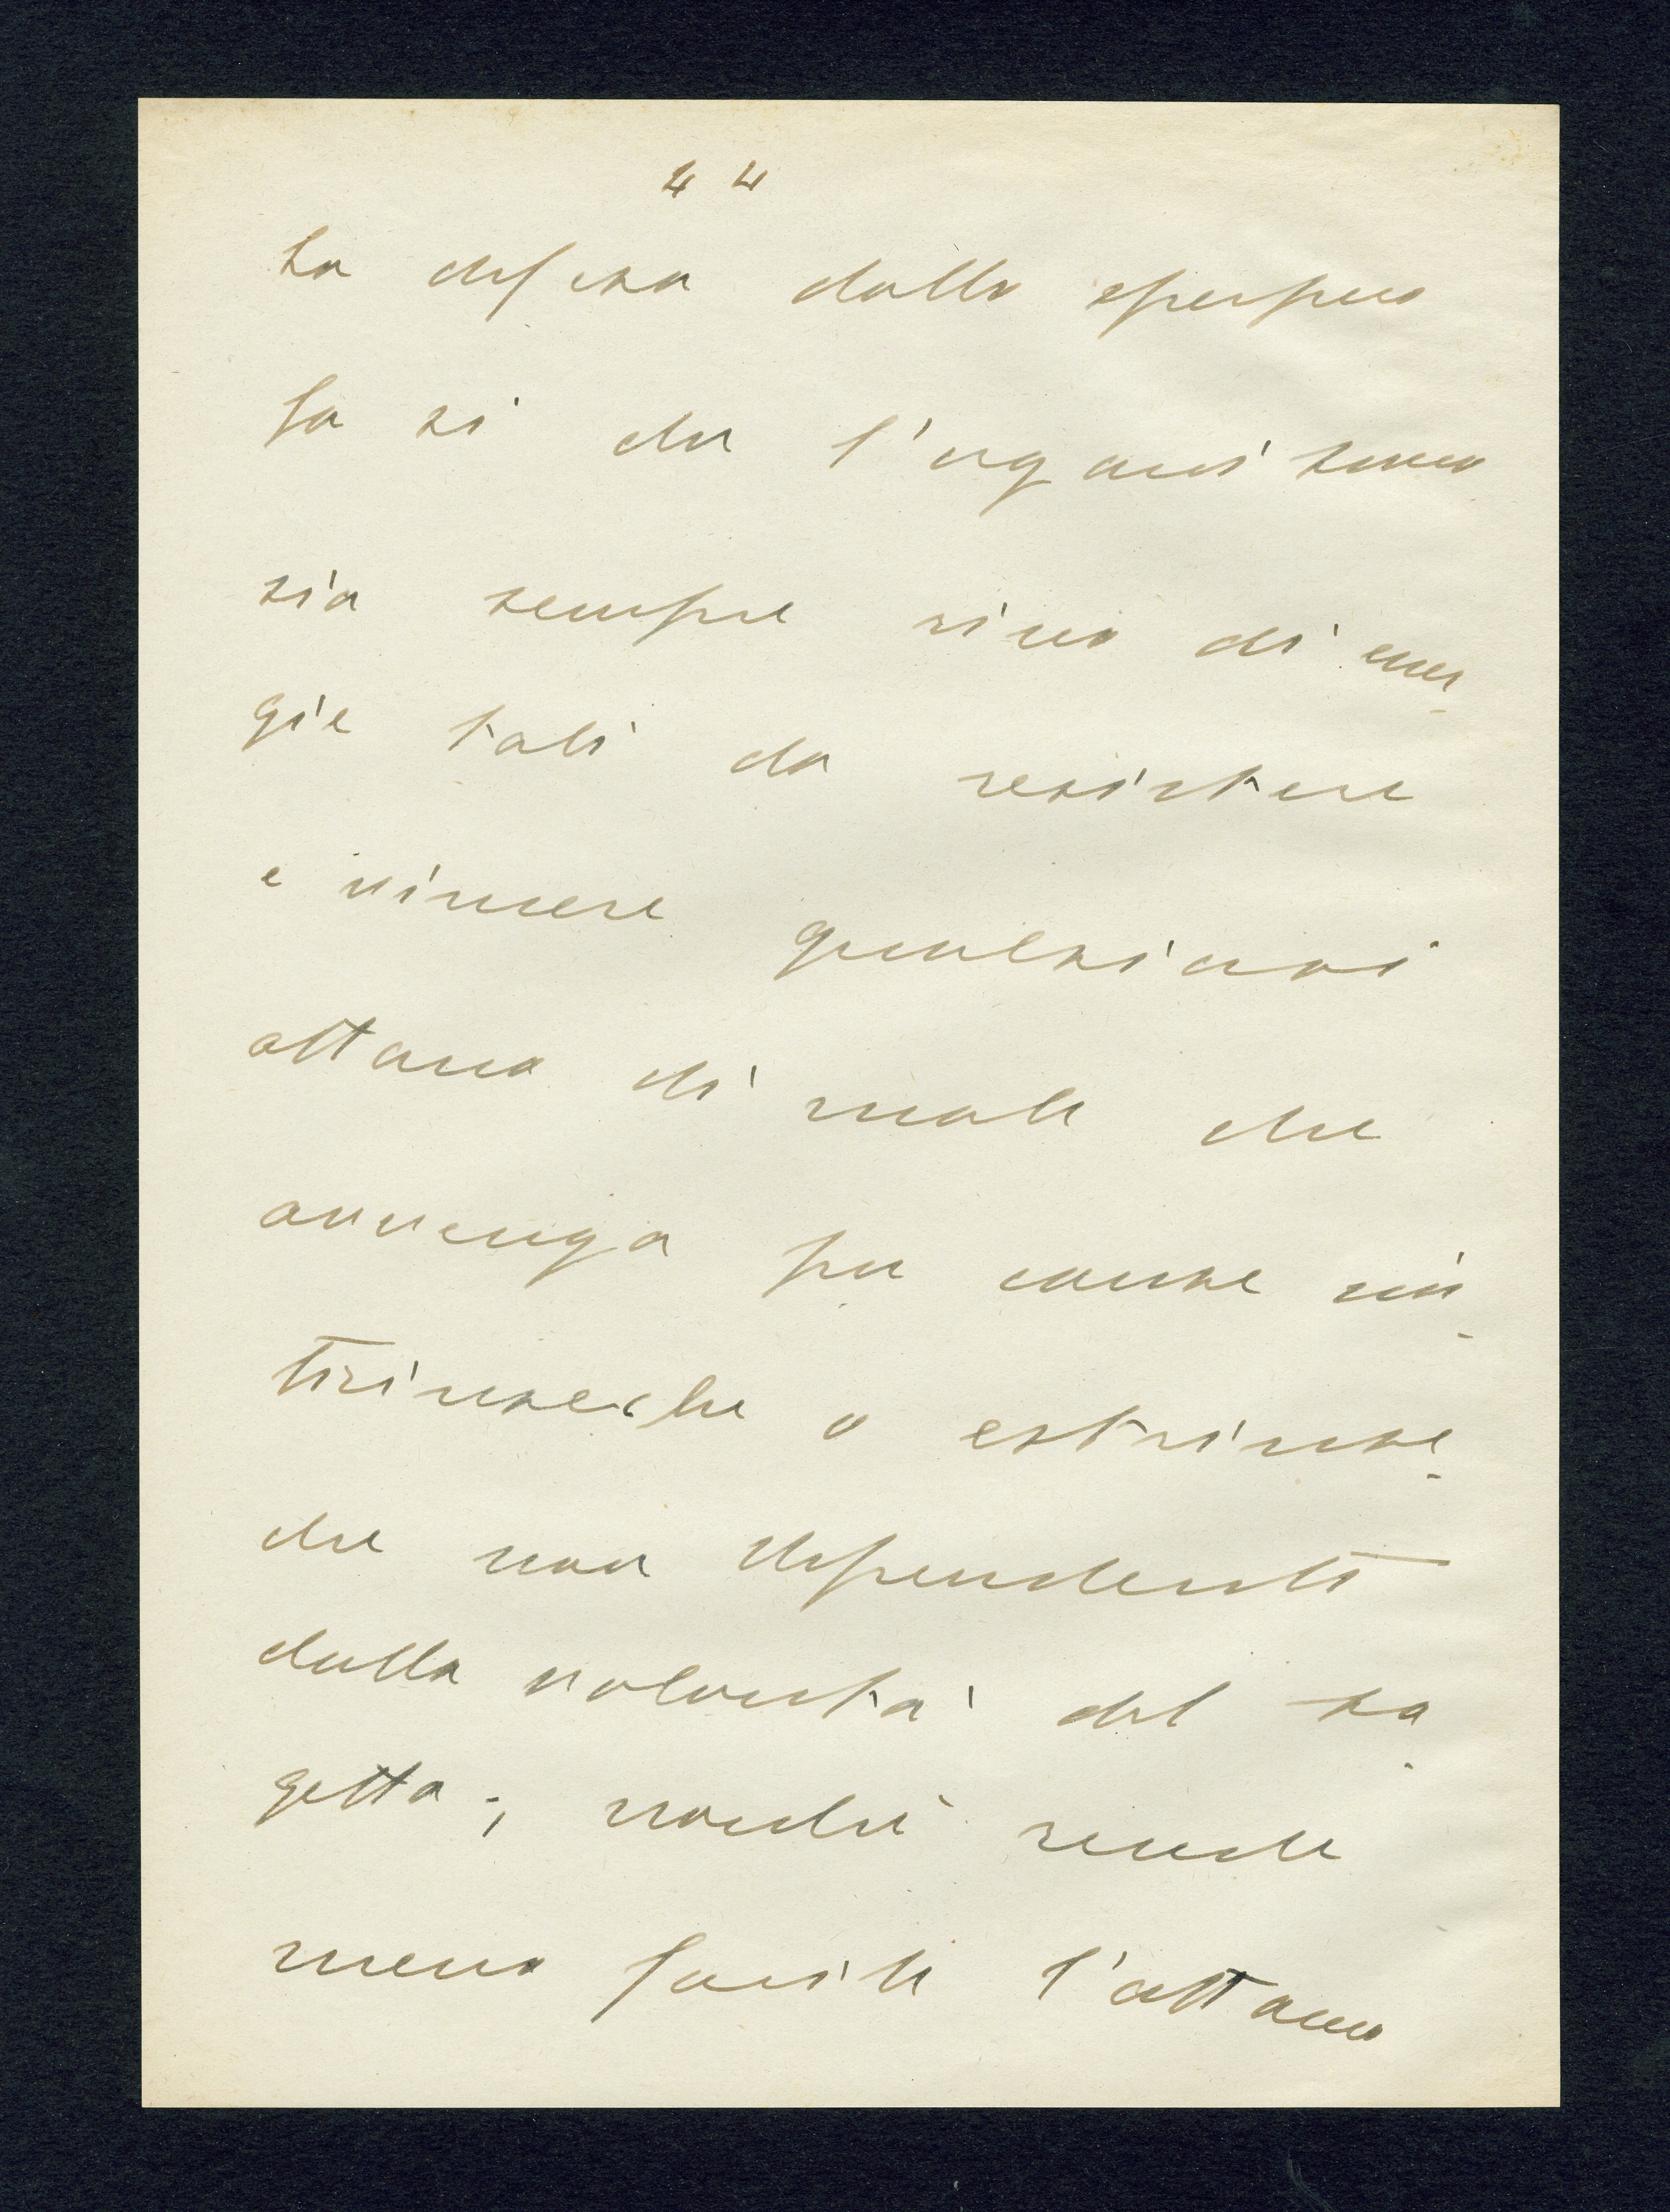 44
La difesa dallo sperpero
fa sì che l'organismo
sia sempre ricco di ener-
gie tali da resistere
e vincere qualsiasi
attacco di male che
avvenga per cause in-
trinseche o estrinse-
che non dipendenti
dalla volontà del so-
getto; nonché rende
meno facile l'attacco